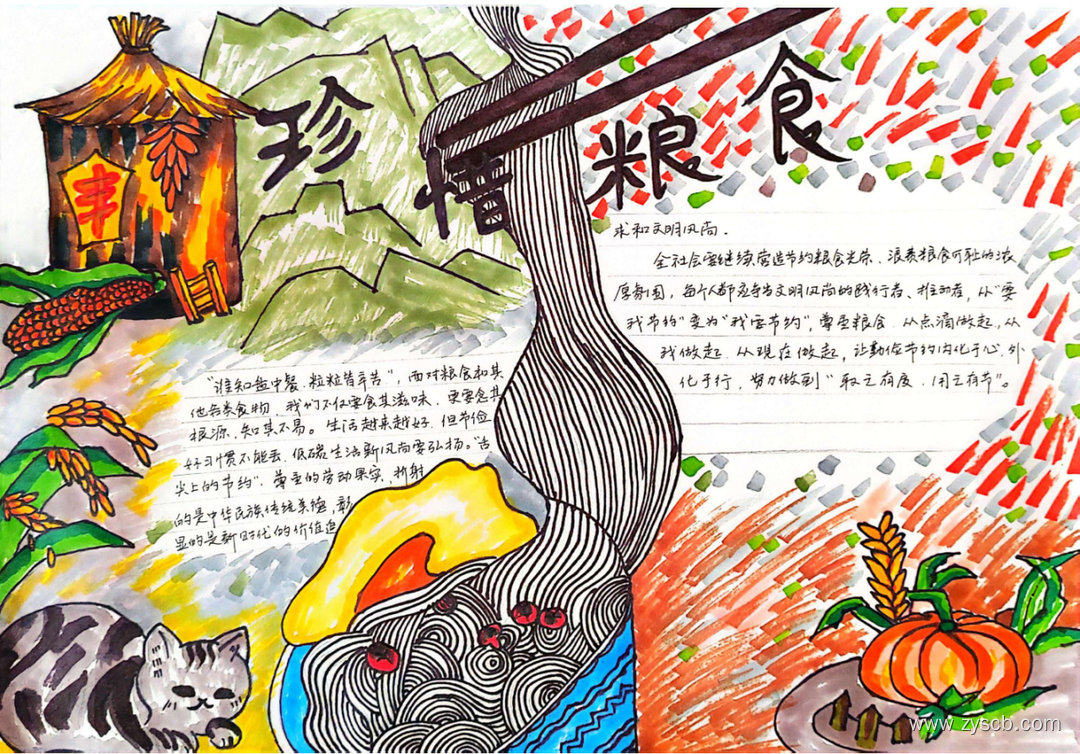 珍惜粮食
丰
"谁知盘中餐、粒粒皆辛苦",面对粮食和其
他各类食物、我们不仅要食其滋味、更要念其
根源、知其不易。生活越来越好、但节俭
好习惯不能丢、低碳生活新风尚要弘扬。"舌
尖上的节约"、尊重的劳动果实,折射
的是中华民族传统美德,彰
显的是新时代的价值追
求和文明风尚.
全社会要继续营造节约粮食光荣、浪费粮食可耻的浓
厚氛围,每个人都应争当文明风尚的践行者、推动者,从"要
我节约"变为"我要节约",尊重粮食、从点滴做起,从
我做起、从现在做起,让勤俭节约内化于心、外
化于行,努力做到"取之有度、用之有节"。
www.zyscb.com